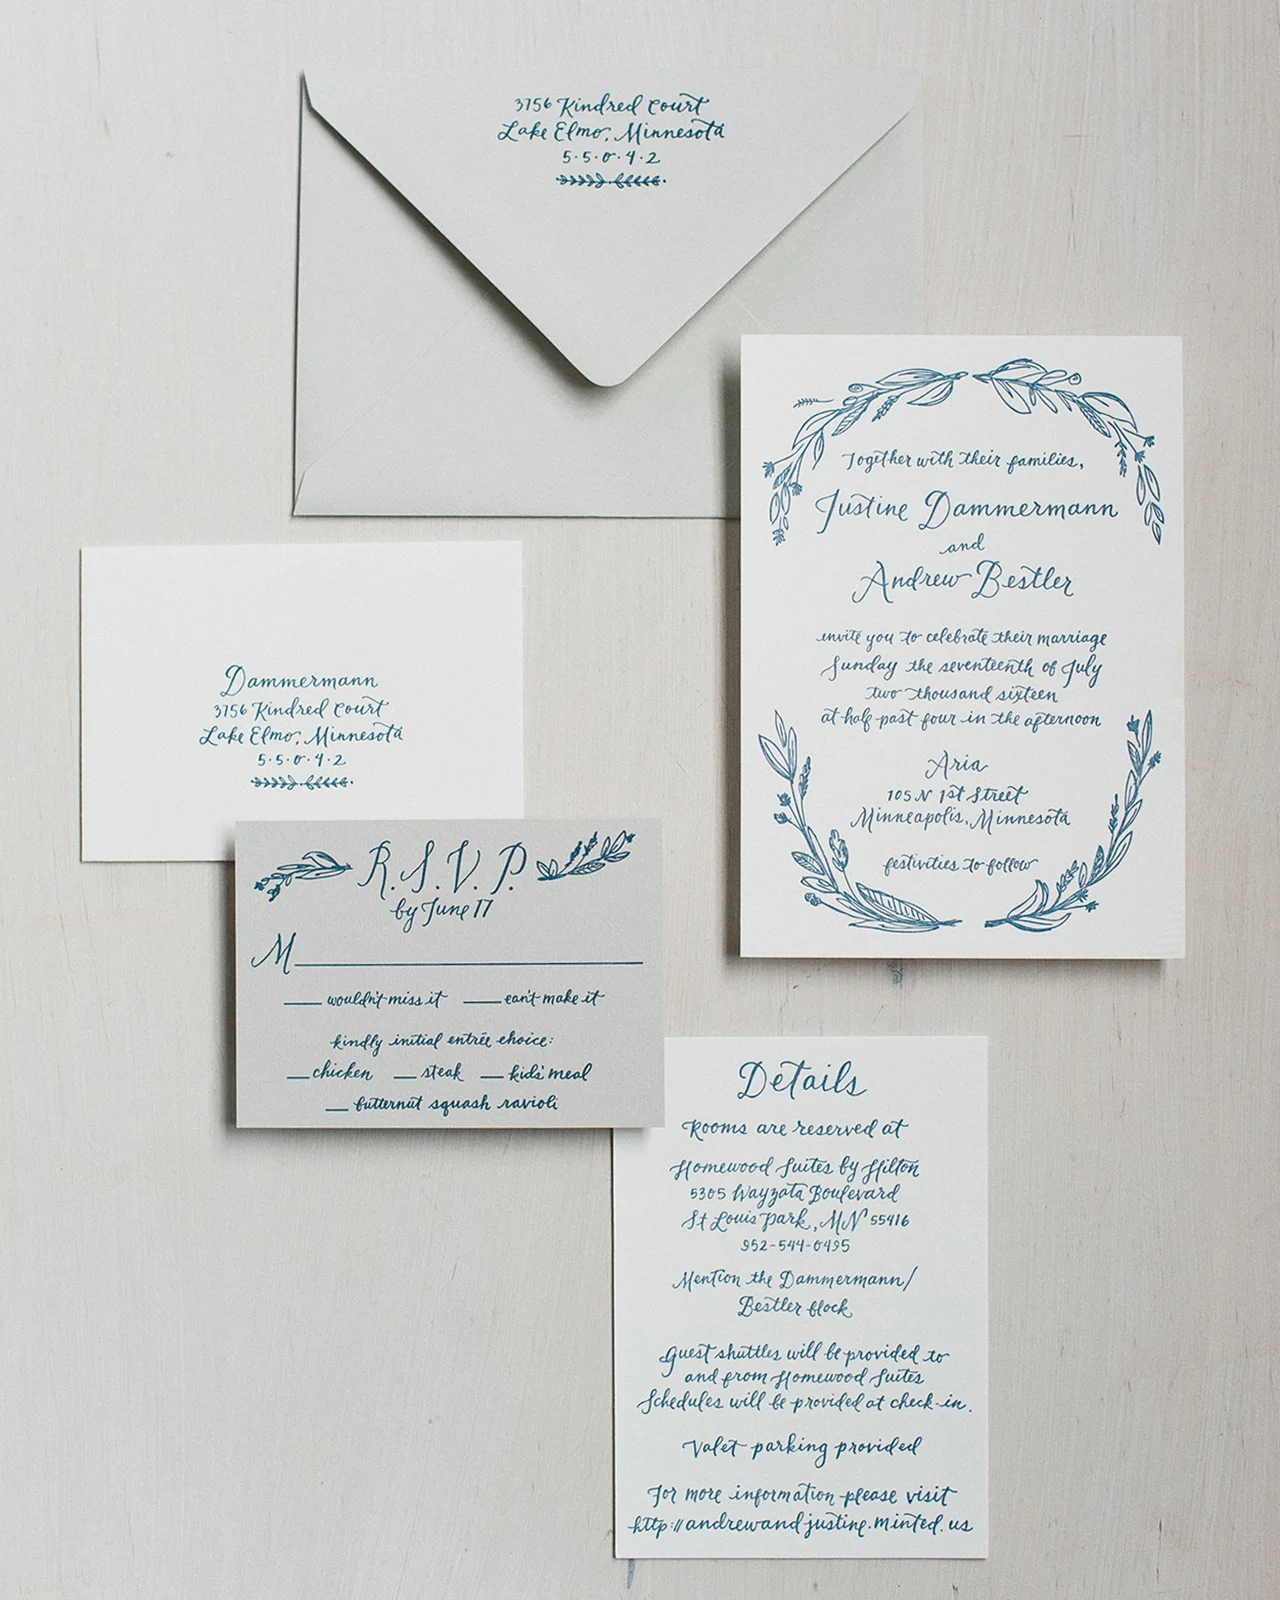 3756 Kindred Court
Lake Elmo, Minnesota
5·5·0·4·2
Together with their families,
Justine Dammermann
and
Andrew Bestler
invite you to celebrate their marriage
Sunday the seventeenth of July
two thousand sixteen
at half past four in the afternoon
Aria
105 N 1st Street
Minneapolis, Minnesota
festivities to follow
Dammermann
3756 Kindred Court
Lake Elmo, Minnesota
5·5·0·4·2
R.S.V.P.
by June 17
M
wouldn't miss it can't make it
kindly initial entrée choice:
chicken steak kids' meal
butternut squash ravioli
Details
Rooms are reserved at
Homewood Suites by Hilton
5305 Wayzata Boulevard
St Louis Park, MN 55416
952-544-0495
Mention the Dammermann/
Bestler block
Guest shuttles will be provided to
and from Homewood Suites
Schedules will be provided at check-in.
Valet parking provided
For more information please visit
http://andrewandjustine.minted.us